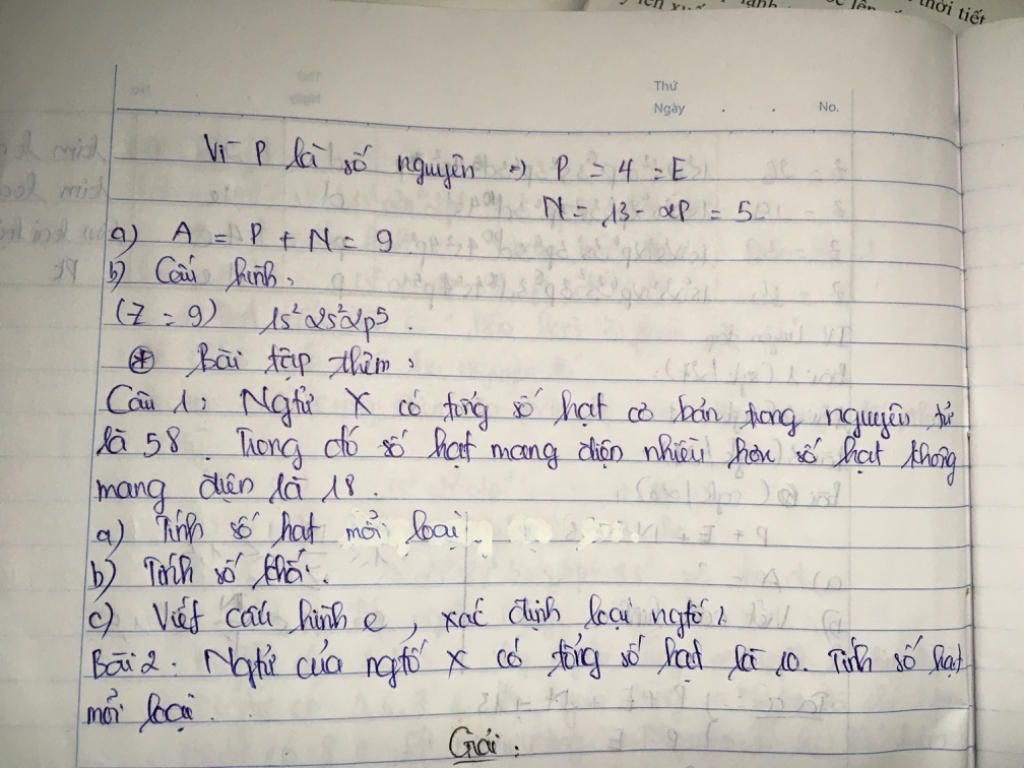 thời tiết
Thứ
Ngày . . No.
Vì P là số nguyên => P = 4 = E
N = 13 - 2P = 5
a) A = P + N = 9
b) Cấu hình:
(Z = 9) 1s² 2s² 2p⁵.
* Bài tập thêm:
Câu 1: Ngtử X có tổng số hạt cơ bản trong nguyên tử
là 58. Trong đó số hạt mang điện nhiều hơn số hạt không
mang điện là 18.
a) Tính số hạt mỗi loại.
b) Tính số khối.
c) Viết cấu hình e, xác định loại ngtố?
Bài 2: Ngtử của ngtố X có tổng số hạt là 10. Tính số hạt
mỗi loại.
Giải: